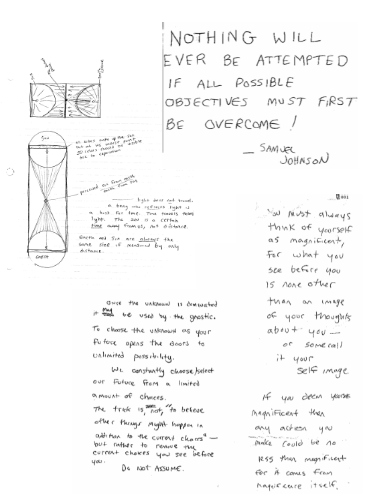 NOTHING WILL
EVER BE ATTEMPTED
IF ALL POSSIBLE
OBJECTIVES MUST FIRST
BE OVERCOME!
— SAMUEL
JOHNSON
Sun
pictured out from earth
light does not travel.
a being with infinite light is
a host for time. Time travels
light. The sun is a certain
time away from us, not distance.
Earth and Sun are always the
same size if measured by only
distance.
EARTH
You must always
think of yourself
as magnificent,
for what you
see before you
is none other
than an image
of your thoughts
about you —
or some call
it your
self image
If you deem yourself
magnificent then
any action you
make could be no
less than magnificent
for it comes from
magnificence itself.
Once the unknown is dominated
it may be used by the gnostic.
To choose the unknown as your
future opens the doors to
unlimited possibility.
We constantly choose/select
our future from a limited
amount of choices.
The trick is, not, to believe
other things might happen in
addition to the current choices —
but rather to remove the
current choices you see before
you.
DO NOT ASSUME.